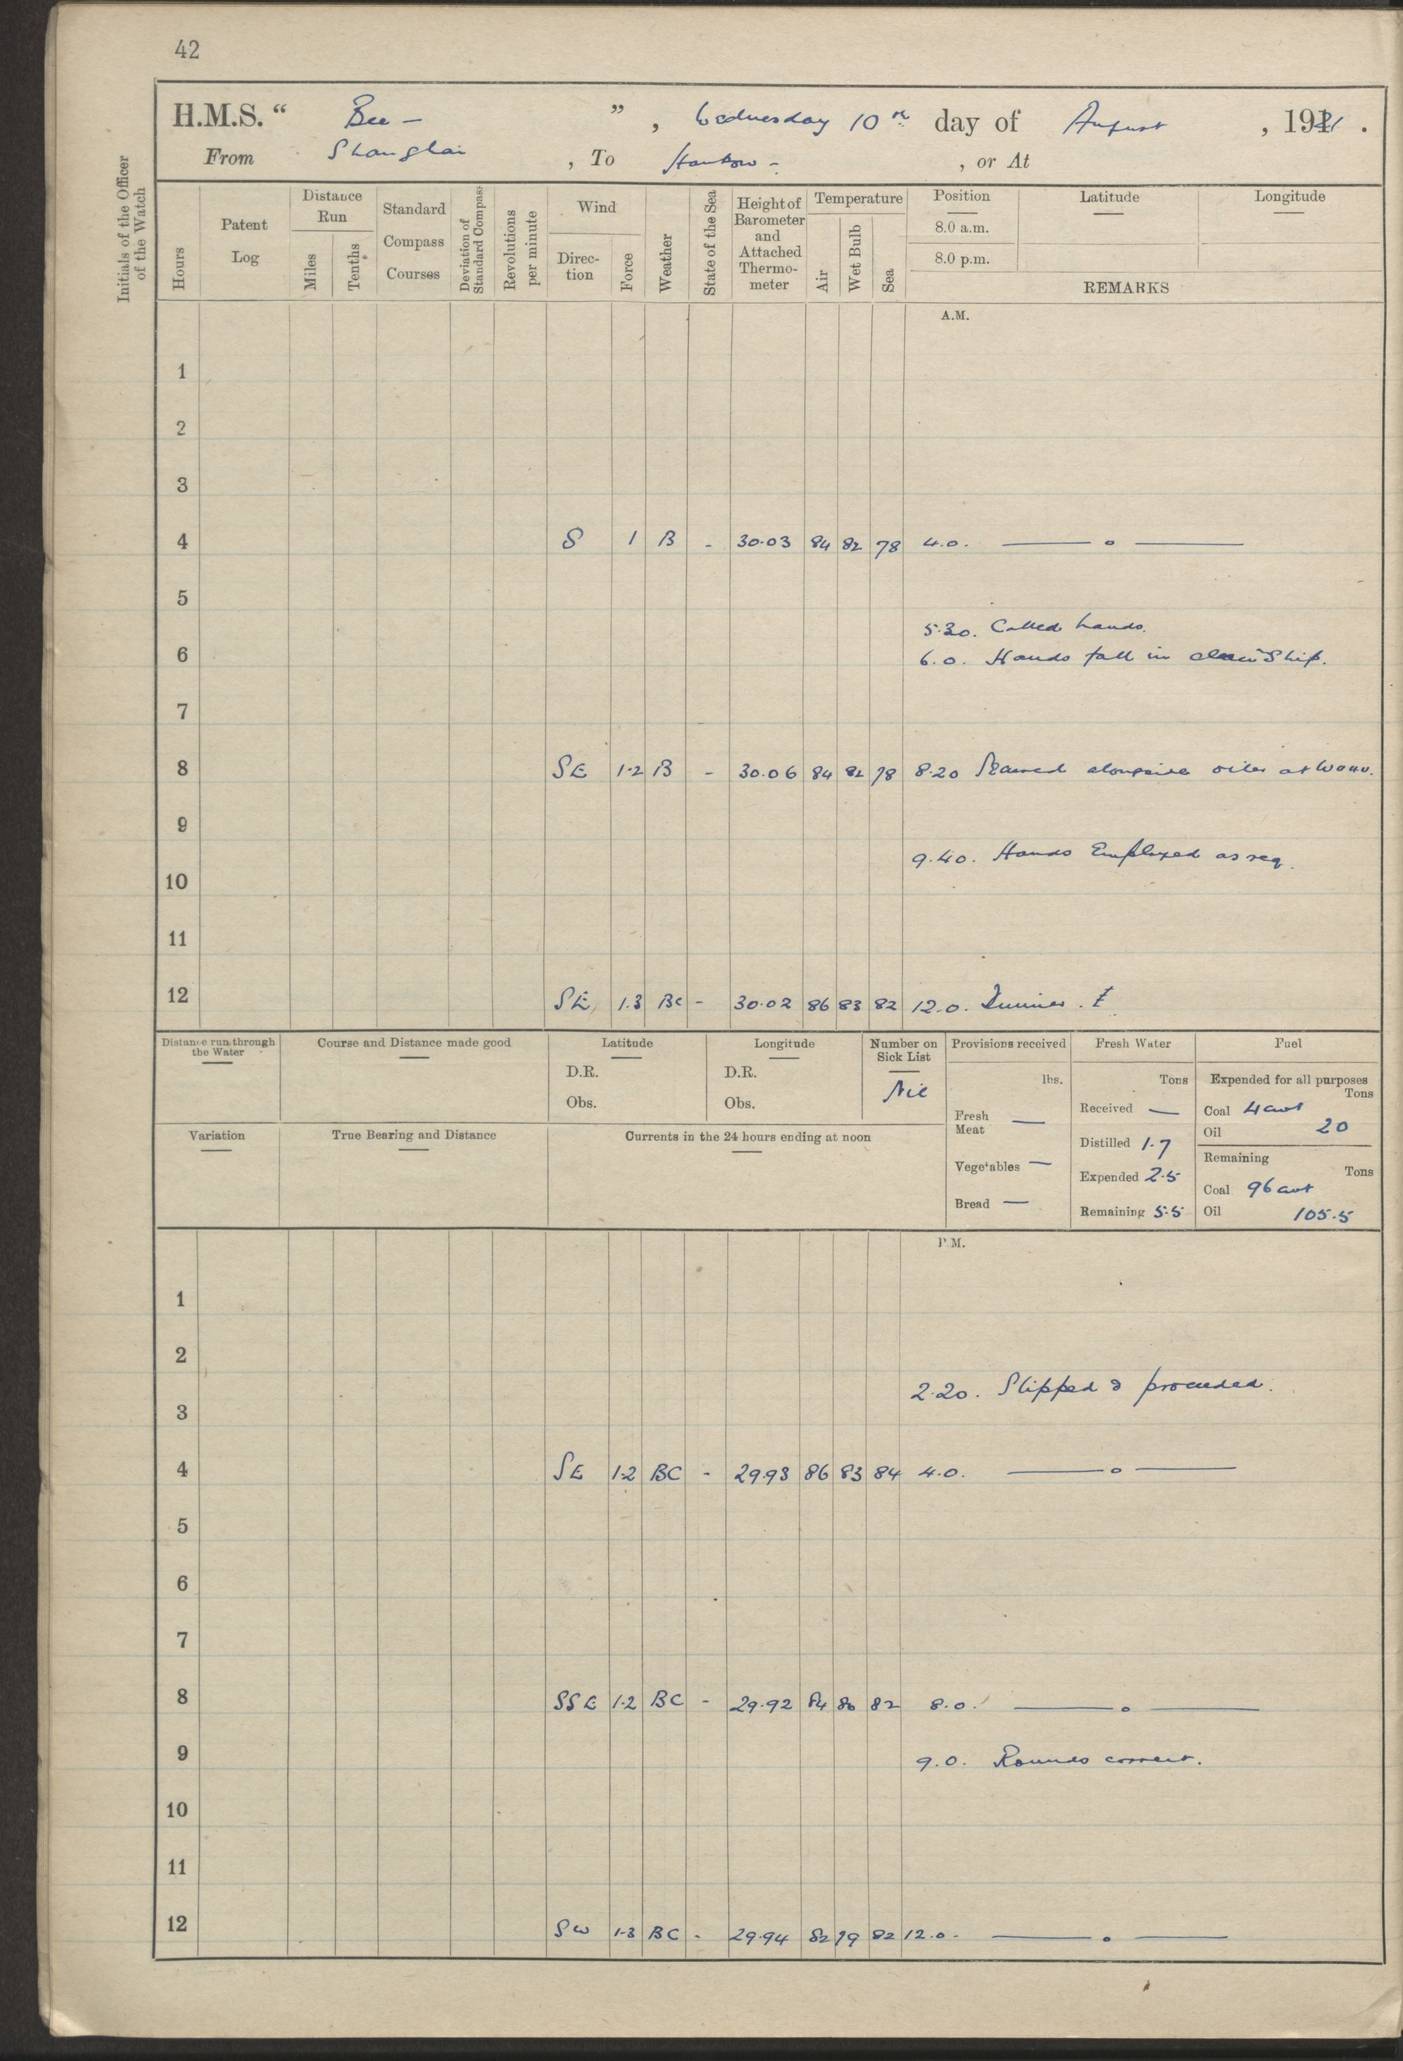 42
H.M.S. “ Bee - ” , Wednesday 10th day of August , 1921 .
From Shanghai , To Hankow - , or At
Initials of the Officer of the Watch
Hours
Patent Log
Distance Run
Miles
Tenths
Standard Compass Courses
Deviation of Standard Compass
Revolutions per minute
Wind
Direction
Force
Weather
State of the Sea
Height of Barometer and Attached Thermometer
Temperature
Air
Wet Bulb
Sea
Position
8.0 a.m.
8.0 p.m.
Latitude
Longitude
REMARKS
A.M.
1
2
3
4 S 1 B - 30.03 84 82 78 4.0. —— o ——
5
5.30. Called hands.
6 6.0. Hands fall in clean Ship.
7
8 SE 1-2 B - 30.06 84 82 78 8.20 alongside oiler at Wuhu.
9
9.40. Hands Employed as req.
10
11
12 SE 1.3 BC - 30.02 86 83 82 12.0. Dinner.
Distance run through the Water
Course and Distance made good
Latitude
D.R.
Obs.
Longitude
D.R.
Obs.
Number on Sick List
Nil
Provisions received
lbs.
Fresh Meat —
Vegetables —
Bread —
Fresh Water
Tons
Received —
Distilled 1.7
Expended 2.5
Remaining 5.5
Fuel
Expended for all purposes
Tons
Coal 4 cwt
Oil 20
Remaining
Tons
Coal 96 cwt
Oil 105.5
Variation
True Bearing and Distance
Currents in the 24 hours ending at noon
P.M.
1
2
2.20. Slipped & proceeded.
3
4 SE 1-2 BC - 29.93 86 83 84 4.0. —— o ——
5
6
7
8 SSE 1-2 BC - 29.92 84 80 82 8.0. —— o ——
9 9.0. Rounds correct.
10
11
12 SW 1-3 BC - 29.94 82 79 82 12.0. —— o ——